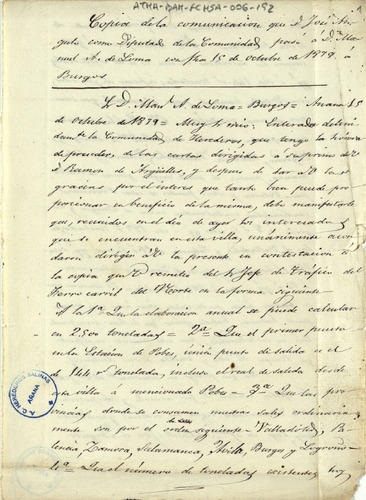 ATHA-DAH-FCHSA-006-192
Copia de la comunicacion que D. José An
gulo como Diputado de la Comunidad pasó á Dn Ma
nuel A. de Loma con fha 15 de octubre de 1879 á
Burgos
Sr D. Manl A. de Loma = Burgos = Anana 15
de Octubre de 1879 = Muy Sr mio: Enterada deteni
damte la Comunidad de Herederos, que tengo la honra
de presidir, de las cartas dirigidas á su primo de V.
D. Ramon de Argüelles, y despues de dar á V. las
gracias por el interes que tanto bien puede pro
porcionar en beneficio de la misma, debe manifestarle
que, reunidos en el dia de ayer los interesados
que se encuentran en esta villa, unánimemente acor
daron dirigir á V. la presente en contestacion á
la copia que V. remitió del Sr Jefe de Trafico del
Ferro carril del Norte en la forma siguiente
A la 1ª Que la elaboracion anual se puede calcular
en 2.500 toneladas = 2ª Que el primer punto
es la Estacion de Pobes, único punto de salida é el
de 144 rs tonelada, incluso el real de salida desde
esta villa á mencionado Pobes = 3ª Que las pro
vincias donde se consumen nuestras sales ordinaria
mente son por el orden siguiente = Valladolid, Pa
lencia, Zamora, Salamanca, Avila, Burgos y Logroño =
4ª Que el número de toneladas existentes hoy
A.C. HEREDEROS SALINAS
AÑANA